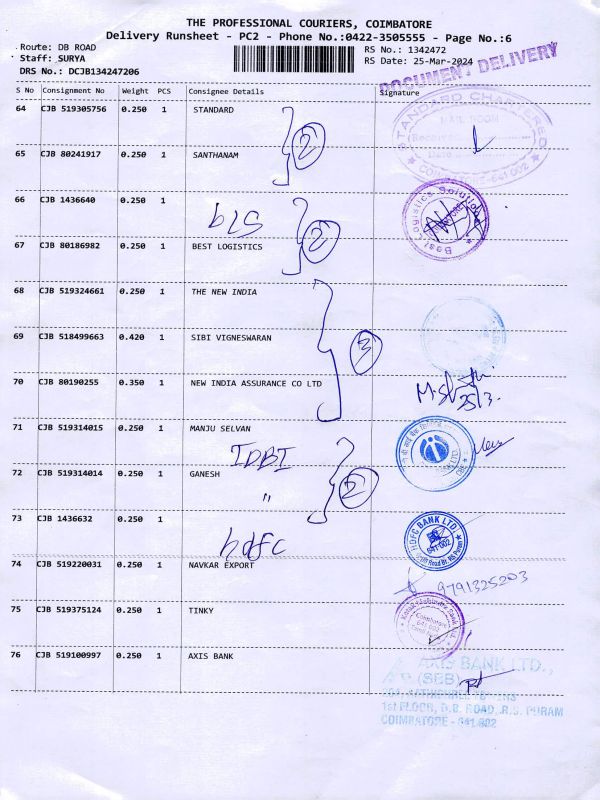 THE PROFESSIONAL COURIERS, COIMBATORE
Delivery Runsheet - PC2 - Phone No.:0422-3505555 - Page No.:6
Route: DB ROAD
Staff: SURYA
DRS No.: DCJB134247206
RS No.: 1342472
RS Date: 25-Mar-2024
DOCUMENT DELIVERY
S No Consignment No Weight PCS Consignee Details Signature
64 CJB 519305756 0.250 1 STANDARD
2
STANDARD CHARTERED
MAIL ROOM
Date
COIMBATORE-641 002
65 CJB 80241917 0.250 1 SANTHANAM
66 CJB 1436640 0.250 1
bLS
2
Best Logistics Solutions
67 CJB 80186982 0.250 1 BEST LOGISTICS
68 CJB 519324661 0.250 1 THE NEW INDIA
69 CJB 518499663 0.420 1 SIBI VIGNESWARAN
3
70 CJB 80190255 0.350 1 NEW INDIA ASSURANCE CO LTD
25/3
71 CJB 519314015 0.250 1 MANJU SELVAN
IDBI
72 CJB 519314014 0.250 1 GANESH
"
2
73 CJB 1436632 0.250 1
hdfc
HDFC BANK LTD.
641 002
74 CJB 519220031 0.250 1 NAVKAR EXPORT
9791325203
75 CJB 519375124 0.250 1 TINKY
Coimbatore
641 002
76 CJB 519100997 0.250 1 AXIS BANK
AXIS BANK LTD.,
(SEB)
1st FLOOR, D.B. ROAD, R.S. PURAM
COIMBATORE - 641 002